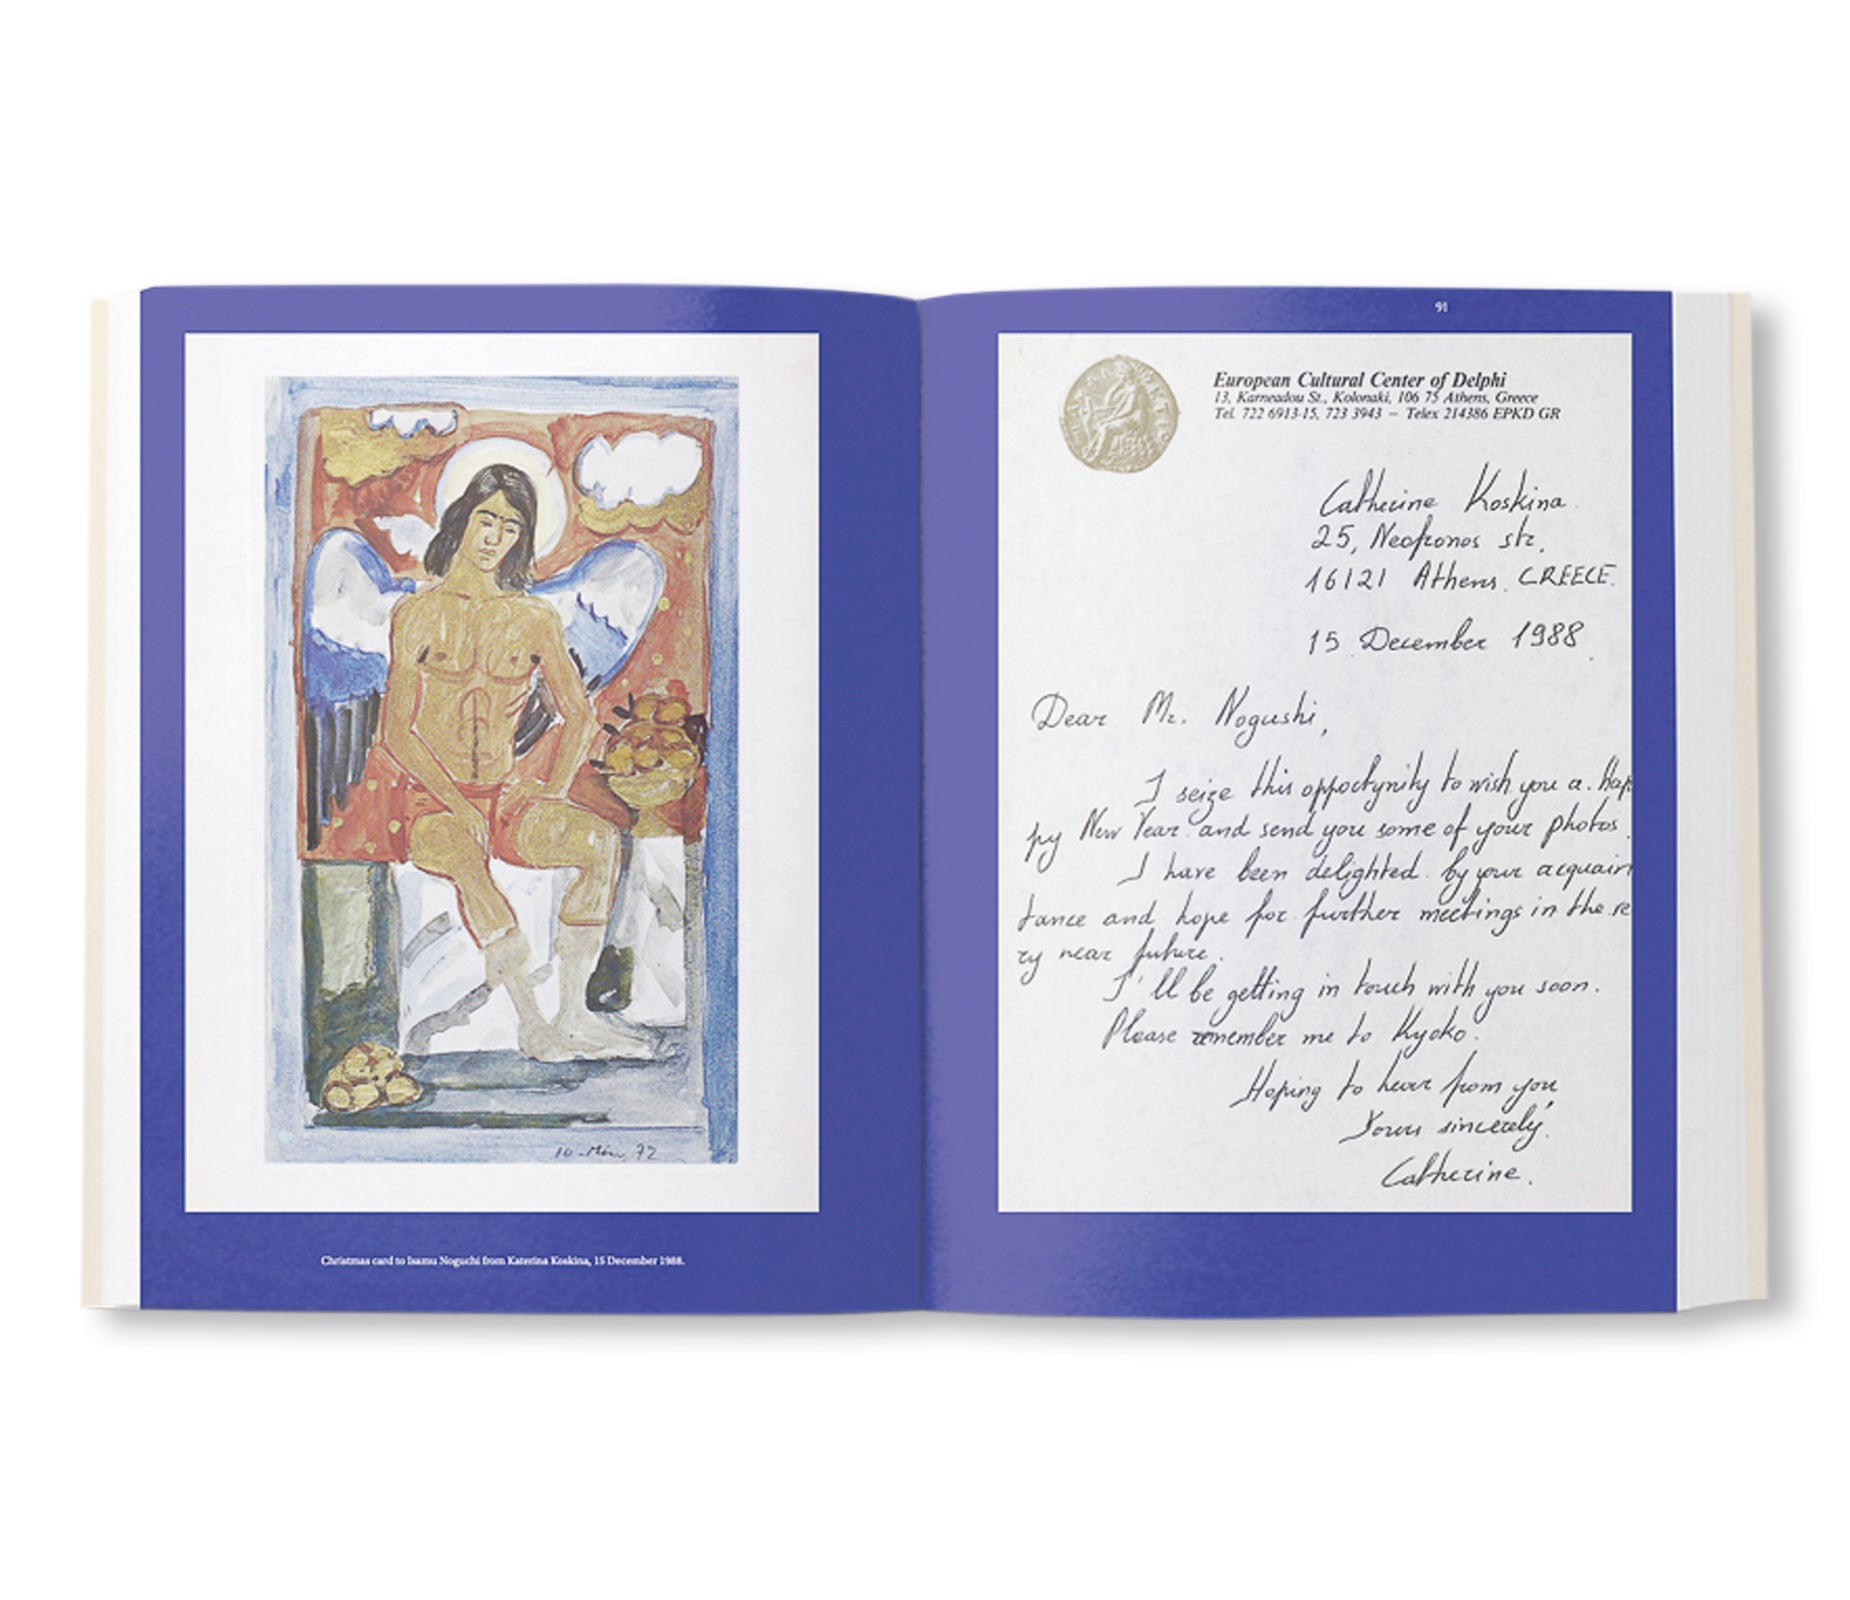 10 - 72
Christmas card to Isamu Noguchi from Katerina Koskina, 15 December 1988.
91
European Cultural Center of Delphi
13, Karneadou St., Kolonaki, 106 75 Athens, Greece
Tel. 722 6913-15, 723 3943 – Telex 214386 EPKD GR
Catherine Koskina
25, Neofronos str.
16121 Athens. GREECE.
15 December 1988.
Dear Mr. Nogushi,
I seize this opportynity to wish you a. Hap
py New Year and send you some of your photos.
I have been delighted by your acquain
tance and hope for further meetings in the ve
ry near future.
I'll be getting in touch with you soon.
Please remember me to Kyoko.
Hoping to hear from you,
Yours sincerely,
Catherine.